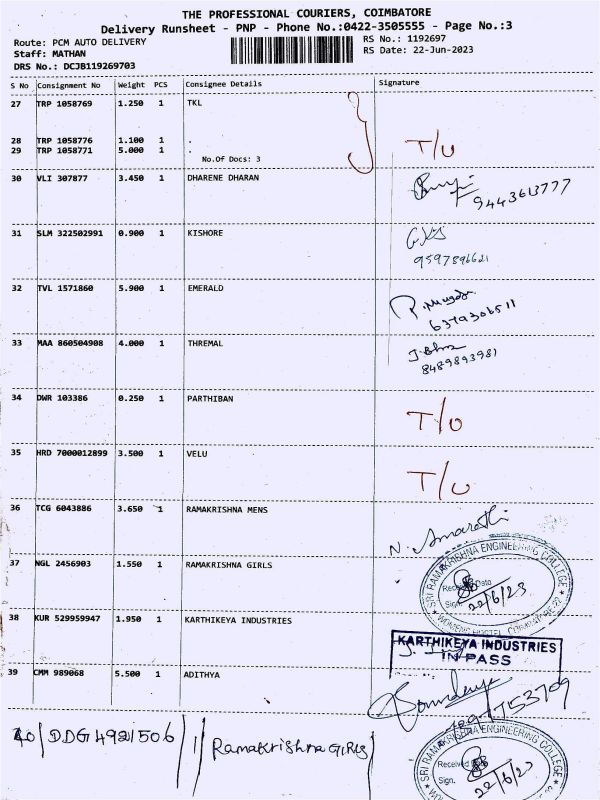 THE PROFESSIONAL COURIERS, COIMBATORE
Delivery Runsheet - PNP - Phone No.:0422-3505555 - Page No.:3
Route: PCM AUTO DELIVERY
Staff: MATHAN
DRS No.: DCJB119269703
RS No.: 1192697
RS Date: 22-Jun-2023
S No Consignment No Weight PCS Consignee Details Signature
27 TRP 1058769 1.250 1 TKL
28 TRP 1058776 1.100 1 .
29 TRP 1058771 5.000 1 .
No.Of Docs: 3
T/U
30 VLI 307877 3.450 1 DHARENE DHARAN
9443613777
31 SLM 322502991 0.900 1 KISHORE
9597896621
32 TVL 1571860 5.900 1 EMERALD
6379306511
33 MAA 860504908 4.000 1 THREMAL
8489893981
34 DWR 103386 0.250 1 PARTHIBAN
T/U
35 HRD 7000012899 3.500 1 VELU
T/U
36 TCG 6043886 3.650 1 RAMAKRISHNA MENS
37 NGL 2456903 1.550 1 RAMAKRISHNA GIRLS
SRI RAMAKRISHNA ENGINEERING COLLEGE
Date
Sign.
22/6/23
38 KUR 529959947 1.950 1 KARTHIKEYA INDUSTRIES
KARTHIKEYA INDUSTRIES
IN PASS
39 CMM 989068 5.500 1 ADITHYA
40 DDG 4921506 1 Ramakrishna GIRLS
SRI RAMAKRISHNA ENGINEERING COLLEGE
Received
Sign.
22/6/23